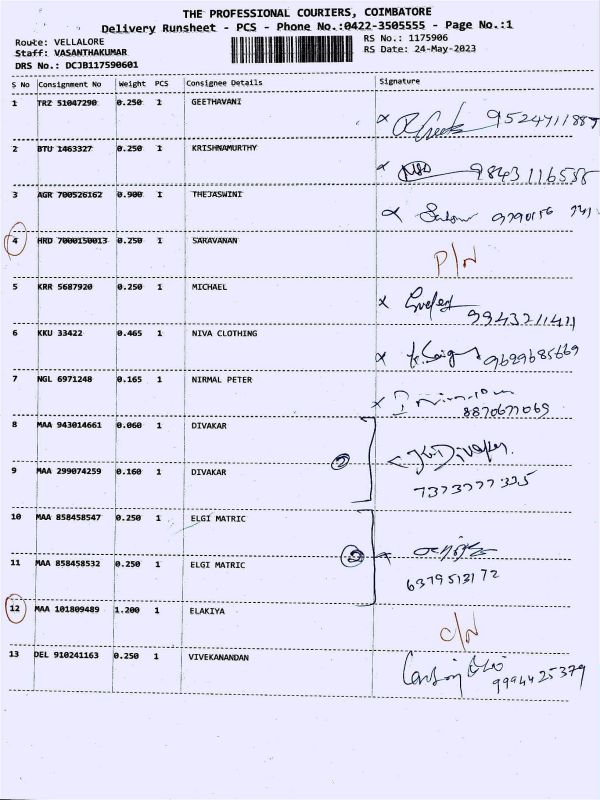 THE PROFESSIONAL COURIERS, COIMBATORE
Delivery Runsheet - PCS - Phone No.:0422-3505555 - Page No.:1
Route: VELLALORE
RS No.: 1175906
Staff: VASANTHAKUMAR
RS Date: 24-May-2023
DRS No.: DCJB117590601
S No Consignment No Weight PCS Consignee Details Signature
1 TRZ 51047290 0.250 1 GEETHAVANI
2 BTU 1463327 0.250 1 KRISHNAMURTHY
9843116538
3 AGR 700526162 0.900 1 THEJASWINI
4 HRD 7000150013 0.250 1 SARAVANAN
P/N
5 KRR 5687920 0.250 1 MICHAEL
9943211411
6 KKU 33422 0.465 1 NIVA CLOTHING
9629685669
7 NGL 6971248 0.165 1 NIRMAL PETER
8870677069
8 MAA 943014661 0.060 1 DIVAKAR
2 K. Divakar
9 MAA 299074259 0.160 1 DIVAKAR
7373777335
10 MAA 858458547 0.250 1 ELGI MATRIC
2
11 MAA 858458532 0.250 1 ELGI MATRIC
6379513172
12 MAA 101809489 1.200 1 ELAKIYA
C/N
13 DEL 910241163 0.250 1 VIVEKANANDAN
9994425379